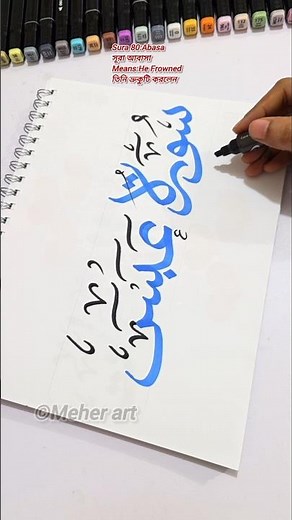 Sura 80:Abasa
সূরা আবাসা
Means:He Frowned
তিনি ভ্রুকুটি করলেন
سورة عبس
©Meher art